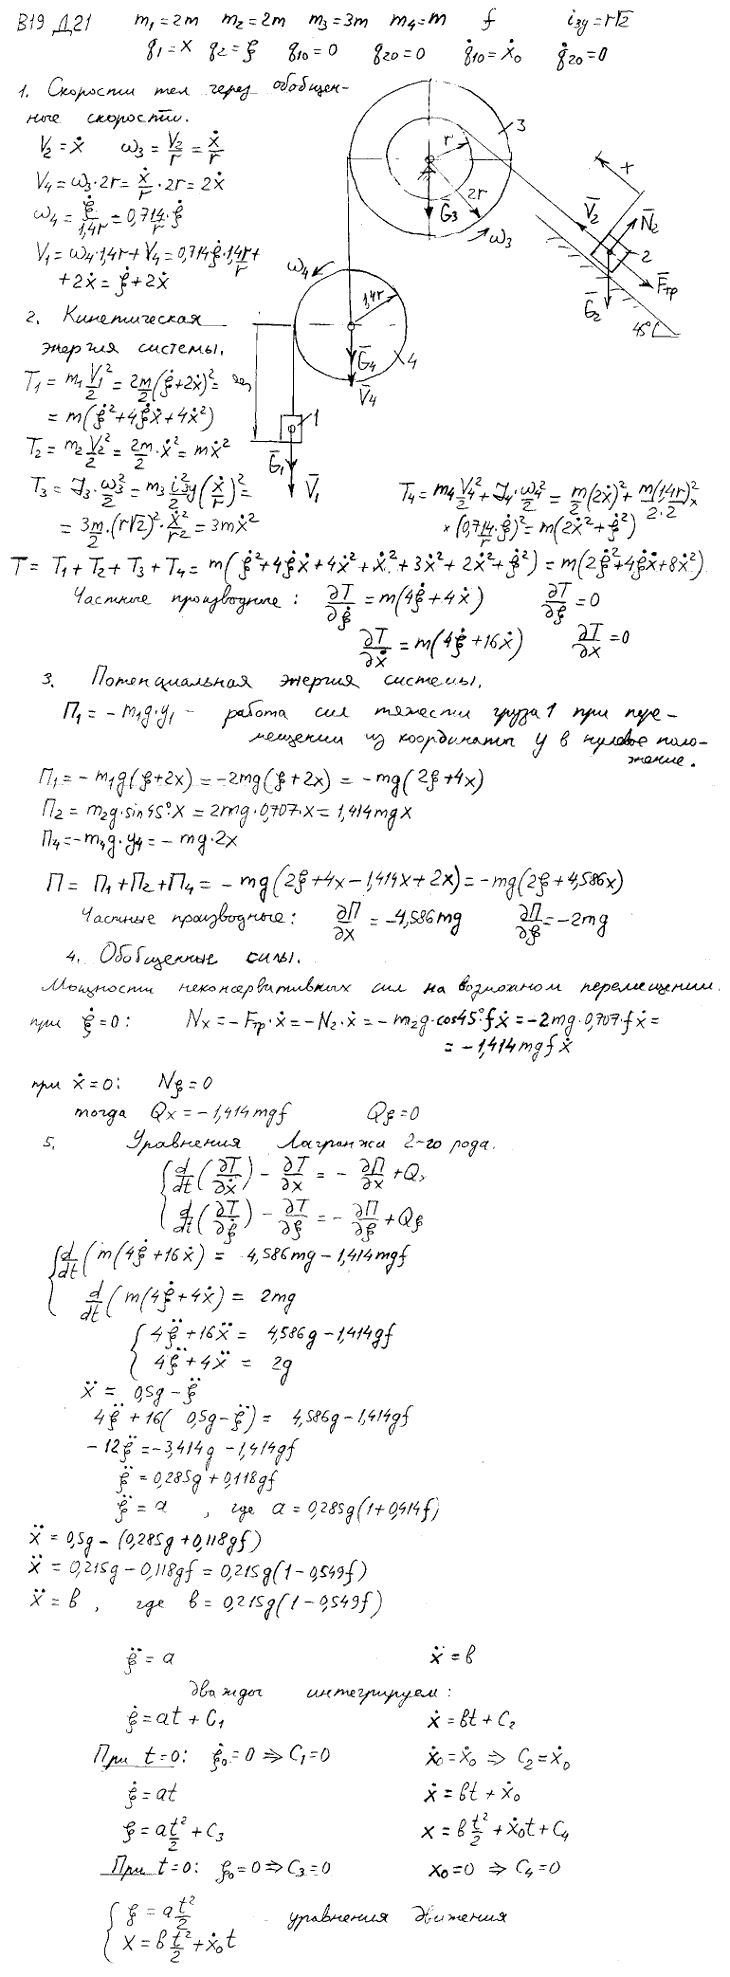 В19 Д21 m₁=2m m₂=2m m₃=3m m₄=m f i₃y=r√2
q₁=x q₂=ξ q₁₀=0 q₂₀=0 q̇₁₀=ẋ₀ q̇₂₀=0
1. Скорости тел через обобщен-
ные скорости.
V₂=ẋ ω₃=V₂/r=ẋ/r
V₄=ω₃·2r=ẋ/r·2r=2ẋ
ω₄=ξ̇/1,4r=0,714/r·ξ̇
V₁=ω₄·1,4r+V₄=0,714ξ̇·1,4r/r+
+2ẋ=ξ̇+2ẋ
3
r
2r
G̅₃
ω₃
x
V̅₂
N̅₂
2
F̅тр
G̅₂
45°
ω₄
1,4r
4
G̅₄
V̅₄
1
G̅₁
V̅₁
2. Кинетическая
энергия системы.
T₁=m₁V₁²/2=2m/2(ξ̇+2ẋ)²=
=m(ξ̇²+4ξ̇ẋ+4ẋ²)
T₂=m₂V₂²/2=2m/2·ẋ²=mẋ²
T₃=J₃·ω₃²/2=m₃i₃²y/2(ẋ/r)²=
=3m/2·(r√2)²·ẋ²/r²=3mẋ²
T₄=m₄V₄²/2+J₄·ω₄²/2=m/2(2ẋ)²+m(1,4r)²/2·2×
×(0,714/r·ξ̇)²=m(2ẋ²+ξ̇²)
T=T₁+T₂+T₃+T₄=m(ξ̇²+4ξ̇ẋ+4ẋ²+ẋ²+3ẋ²+2ẋ²+ξ̇²)=m(2ξ̇²+4ξ̇ẋ+8ẋ²)
Частные производные: ∂T/∂ξ̇=m(4ξ̇+4ẋ) ∂T/∂ξ=0
∂T/∂ẋ=m(4ξ̇+16ẋ) ∂T/∂x=0
3. Потенциальная энергия системы.
П₁=-m₁g·y₁ - работа сил тяжести груза 1 при пере-
мещении из координаты y в нулевое поло-
жение.
П₁=-m₁g(ξ+2x)=-2mg(ξ+2x)=-mg(2ξ+4x)
П₂=m₂g·sin45°·x=2mg·0,707·x=1,414mgx
П₄=-m₄g·y₄=-mg·2x
П=П₁+П₂+П₄=-mg(2ξ+4x-1,414x+2x)=-mg(2ξ+4,586x)
Частные производные: ∂П/∂x=-4,586mg ∂П/∂ξ=-2mg
4. Обобщенные силы.
Мощности неконсервативных сил на возможном перемещении.
при ξ̇=0: Nx=-Fтр·ẋ=-N₂·ẋ=-m₂g·cos45°fẋ=-2mg·0,707·fẋ=
=-1,414mgfẋ
при ẋ=0: Nξ=0
тогда Qx=-1,414mgf Qξ=0
5. Уравнения Лагранжа 2-го рода.
{d/dt(∂T/∂ẋ)-∂T/∂x=-∂П/∂x+Qx
d/dt(∂T/∂ξ̇)-∂T/∂ξ=-∂П/∂ξ+Qξ
{d/dt(m(4ξ̇+16ẋ)=4,586mg-1,414mgf
d/dt(m(4ξ̇+4ẋ)=2mg
{4ξ̈+16ẍ=4,586g-1,414gf
4ξ̈+4ẍ=2g
ẍ=0,5g-ξ̈
4ξ̈+16(0,5g-ξ̈)=4,586g-1,414gf
-12ξ̈=-3,414g-1,414gf
ξ̈=0,285g+0,118gf
ξ̈=a, где a=0,285g(1+0,414f)
ẍ=0,5g-(0,285g+0,118gf)
ẍ=0,215g-0,118gf=0,215g(1-0,549f)
ẍ=в, где в=0,215g(1-0,549f)
ξ̈=a ẍ=в
дважды интегрируем:
ξ̇=at+C₁ ẋ=вt+C₂
При t=0: ξ̇₀=0⇒C₁=0 ẋ₀=ẋ₀⇒C₂=ẋ₀
ξ̇=at ẋ=вt+ẋ₀
ξ=at²/2+C₃ x=вt²/2+ẋ₀t+C₄
При t=0: ξ₀=0⇒C₃=0 x₀=0⇒C₄=0
{ξ=at²/2
x=вt²/2+ẋ₀t - уравнения движения